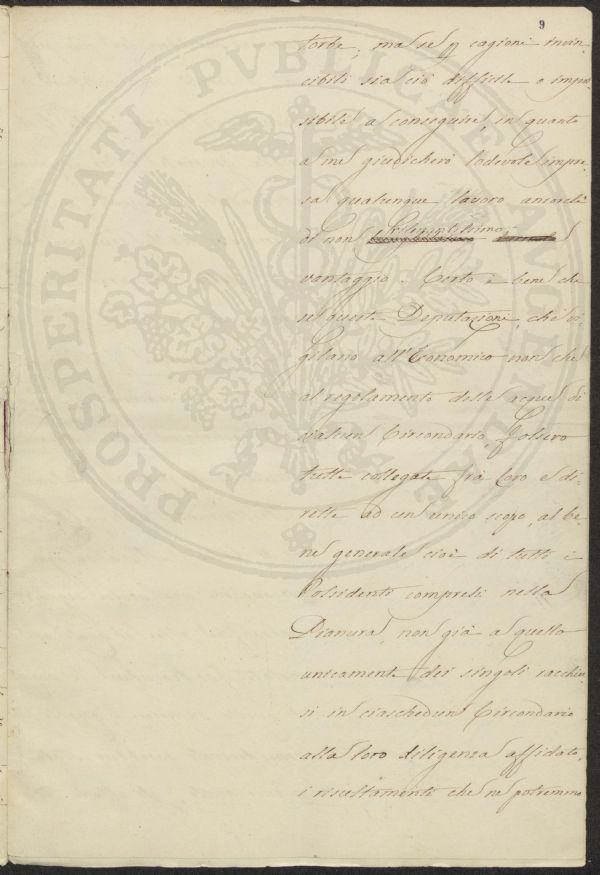 9
torbe; ma se p cagioni invin-
cibili sia ciò difficile o impos-
sibile a conseguire, in quanto
a me giudicherò lodevole impre-
sa qualunque lavoro ancorchè
di non
vantaggio. Certo è bene che
se queste Deputazioni, che vi-
gilano all'Economico non che
al regolamento delle acque di
ciascun Circondario, fossero
tutte collegate frà loro e di-
rette ad un unico scopo, al be-
ne generale cioè di tutti i
Possidenti compresi nella
Pianura, non già a quello
unicamente dei singoli racchiu-
si in ciaschedun Circondario
alla loro diligenza affidato,
i riscaltamenti che ne potremmo
PROSPERITATI PUBLICAE AUGENDAE